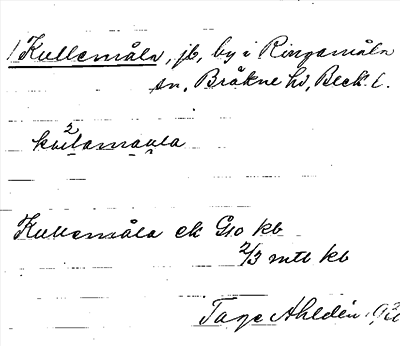 Kullemåla, jb, by i Ringamåla
sn, Bräkne hd, Blek. l.
Kullemåla ek G10 kb
2/3 mtl kb
Tage Ahldén